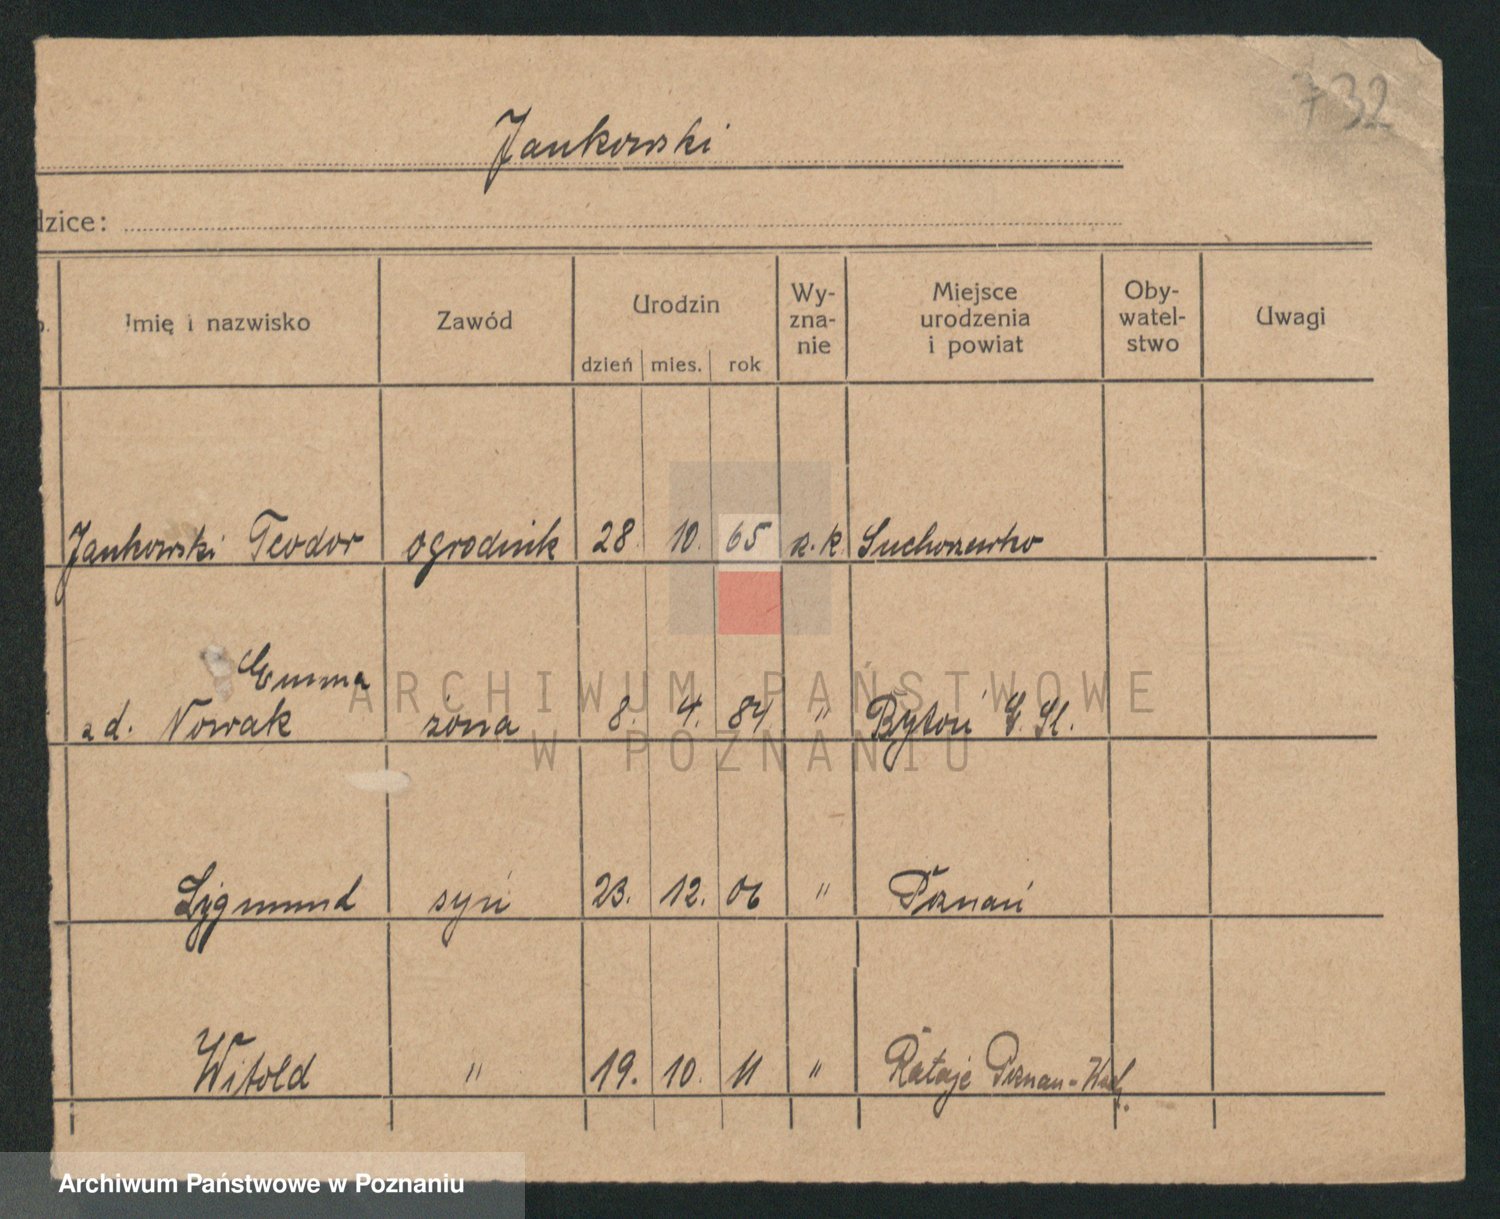 732
Jankowski
dzice:
Imię i nazwisko Zawód Urodzin dzień mies. rok Wy-zna-nie Miejsce urodzenia i powiat Oby-watel-stwo Uwagi
Jankowski Teodor ogrodnik 28. 10. 65 rz. k. Suchorzewko
Emma
zd. Nowak żona 8. 4. 84 " Bytoń G. Sl.
Zygmund syn 23. 12. 06 " Poznań
Witold " 19. 10. 11 " Rataje Poznan-Wsch.
ARCHIWUM PAŃSTWOWE
W POZNANIU
Archiwum Państwowe w Poznaniu